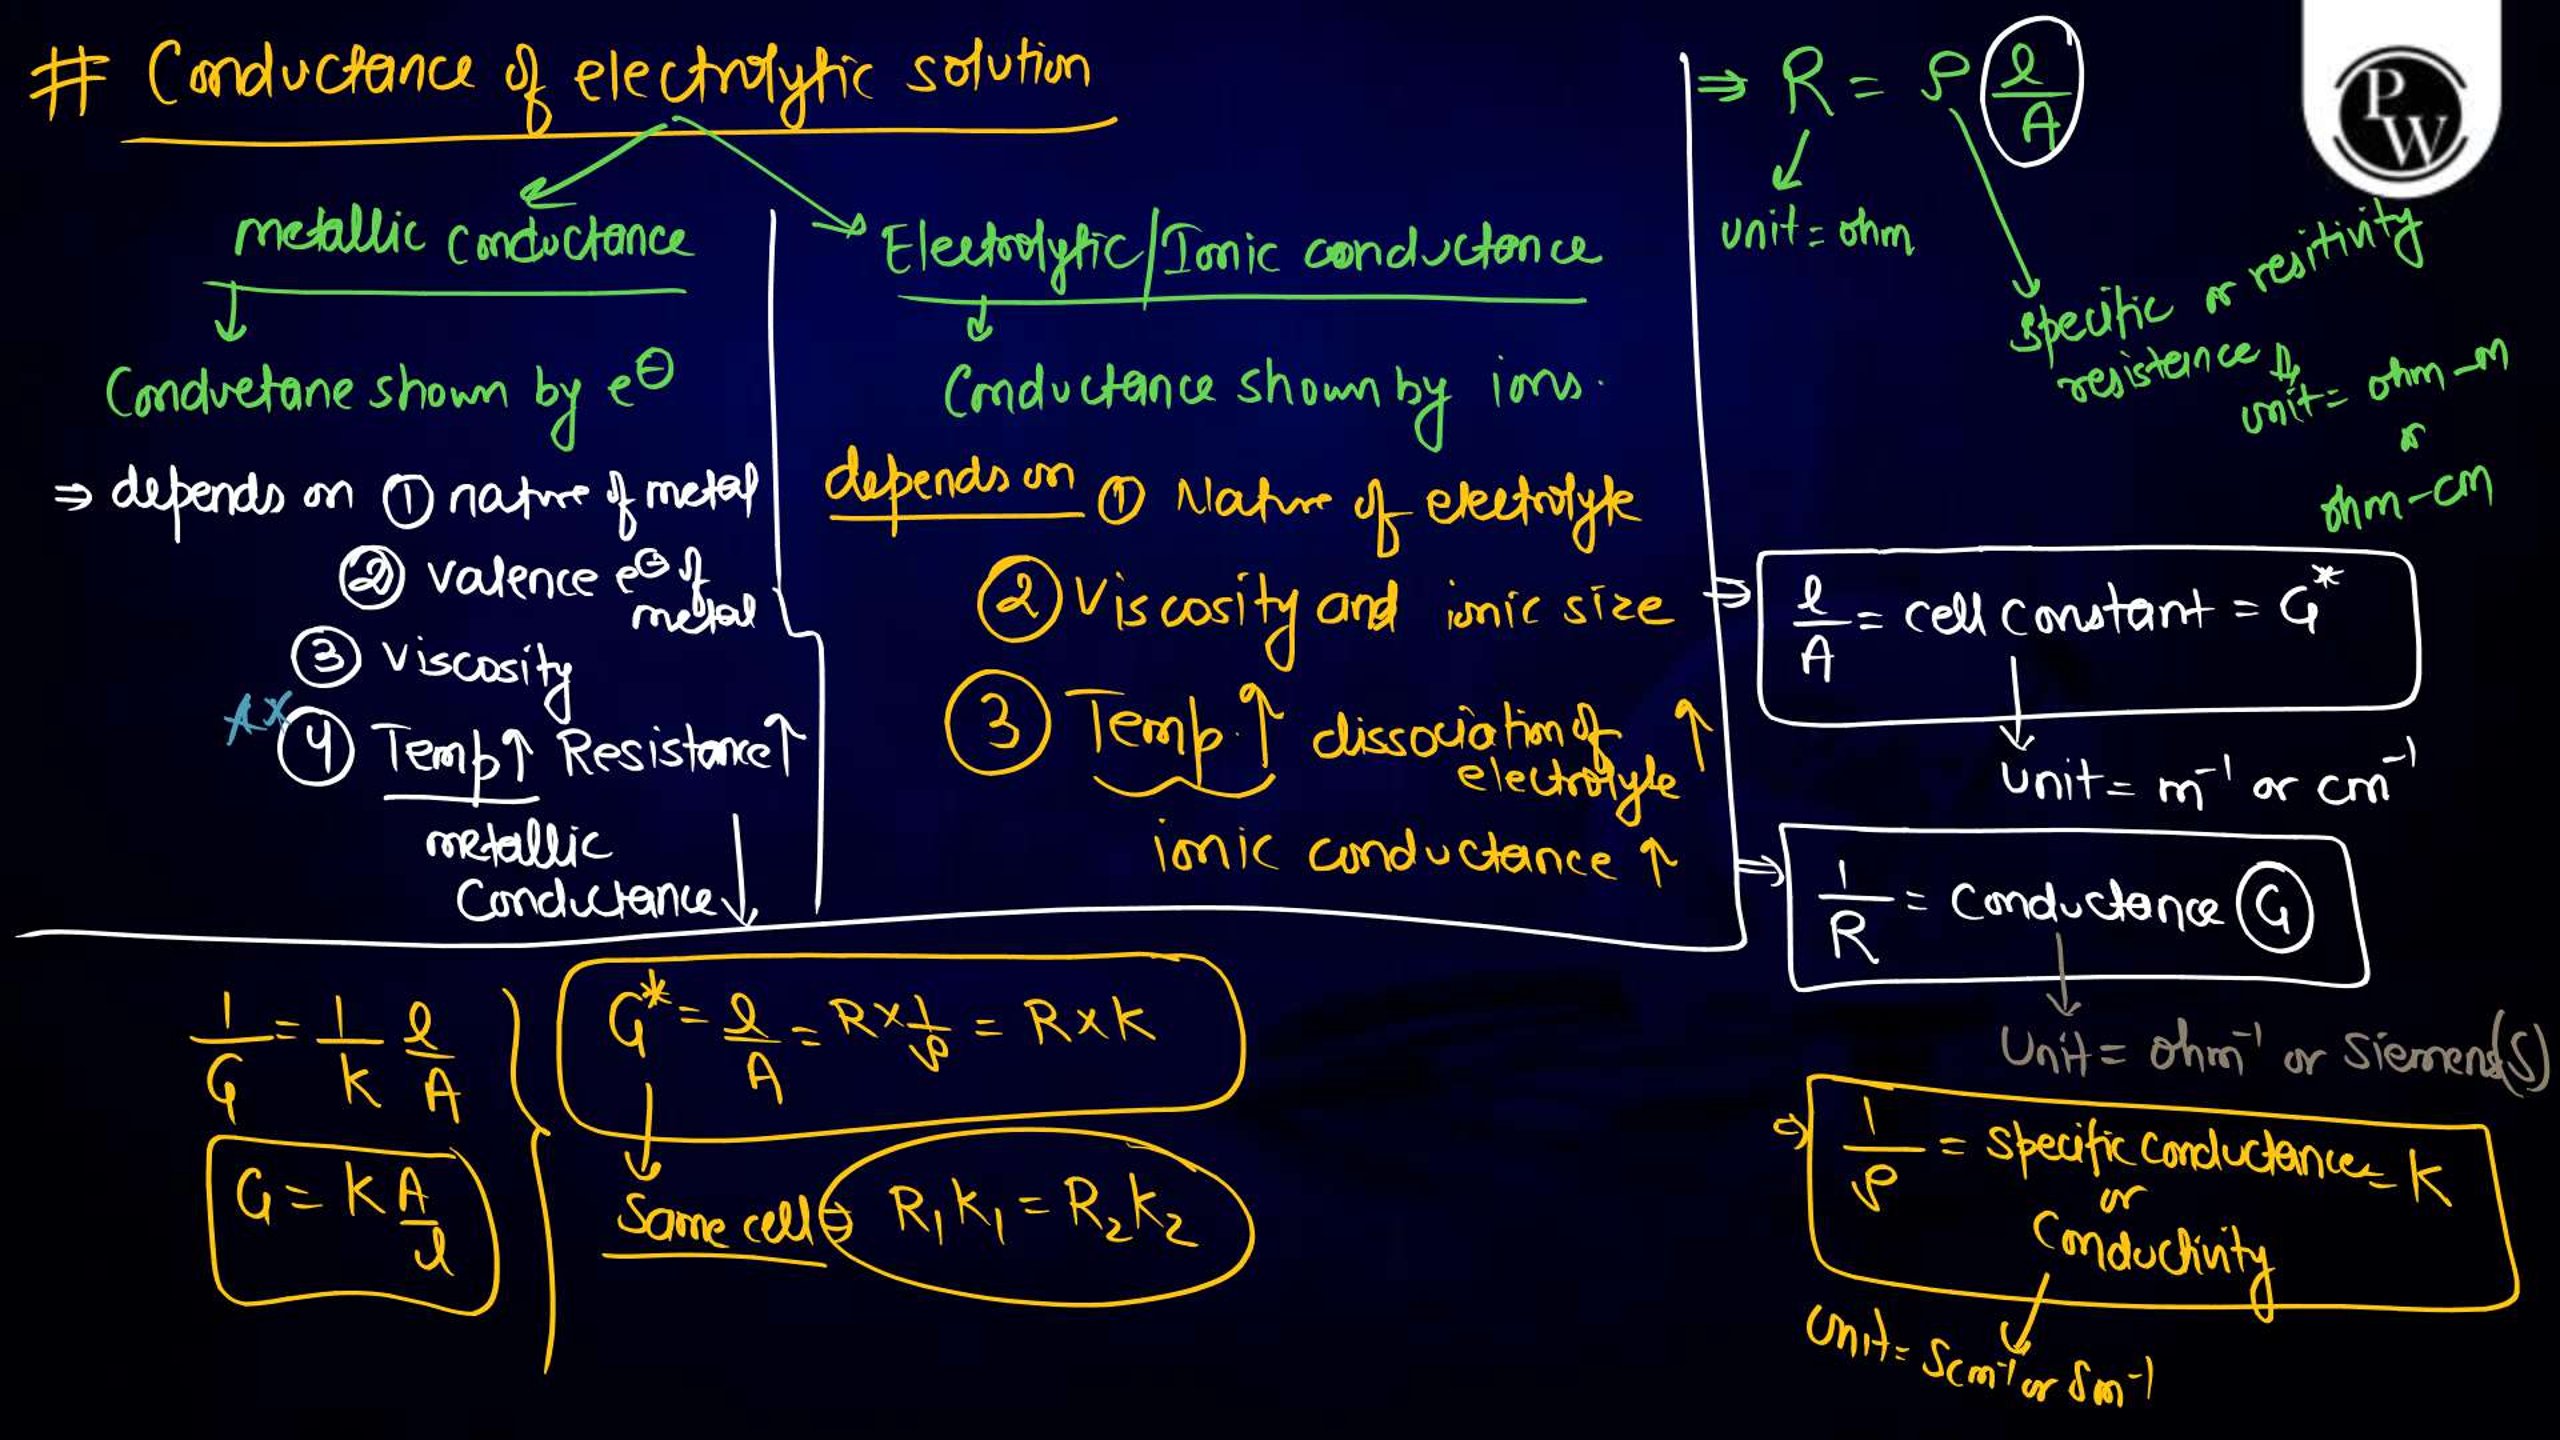 # Conductance of electrolytic solution
metallic conductance
Condvetane shown by e⊖
⇒ depends on ① nature of metal
② valence e⊖ of
metal
③ Viscosity
④ Temp↑ Resistance↑
metallic
Conductance↓
Electrolytic/Ionic conductance
Conductance shown by ions.
depends on ① Nature of electrolyte
② Viscosity and ionic size
③ Temp.↑ dissociation of ↑
electrolyte
ionic conductance ↑
⇒ R = ρ l/A
unit = ohm
specific or resitivity
resistance
unit = ohm-m
or
ohm-cm
⇒ l/A = cell constant = G*
unit = m⁻¹ or cm⁻¹
⇒ 1/R = Conductance G
Unit = ohm⁻¹ or Siemens(S)
⇒ 1/ρ = Specific conductance = K
or
Conductivity
Unit = Scm⁻¹ or Sm⁻¹
1/G = 1/K l/A
G = K A/l
G* = l/A = R × 1/ρ = R × K
Same cell → R₁K₁ = R₂K₂
PW